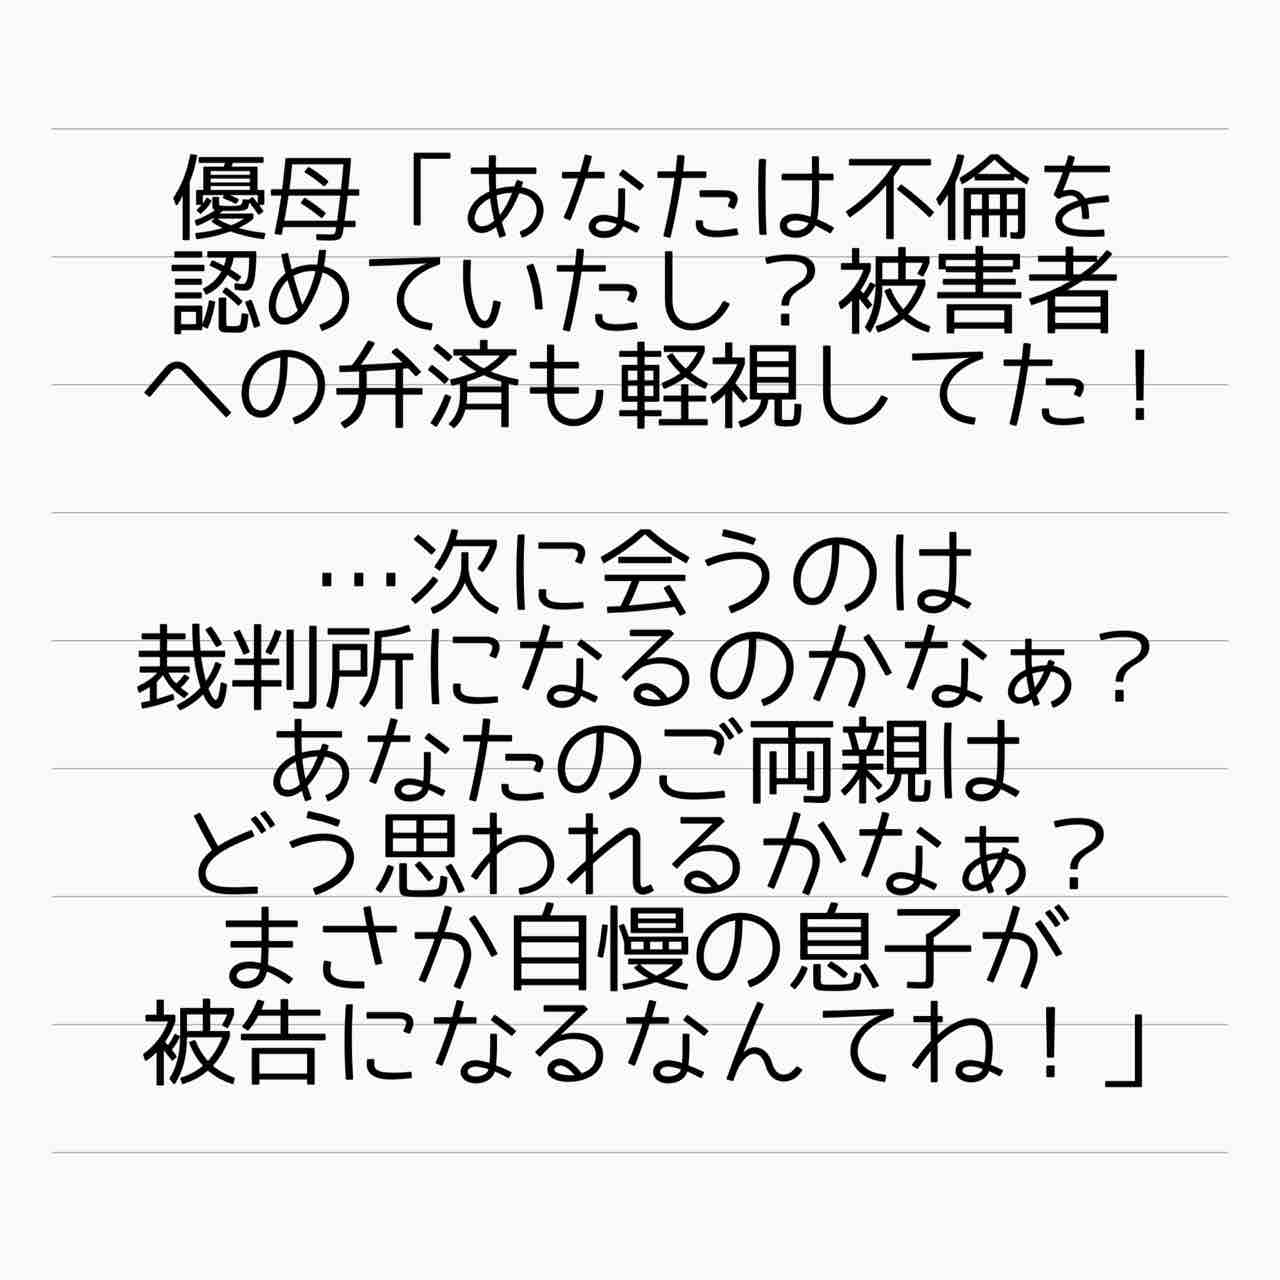 優母「あなたは不倫を
認めていたし？被害者
への弁済も軽視してた！
…次に会うのは
裁判所になるのかなぁ？
あなたのご両親は
どう思われるかなぁ？
まさか自慢の息子が
被告になるなんてね！」